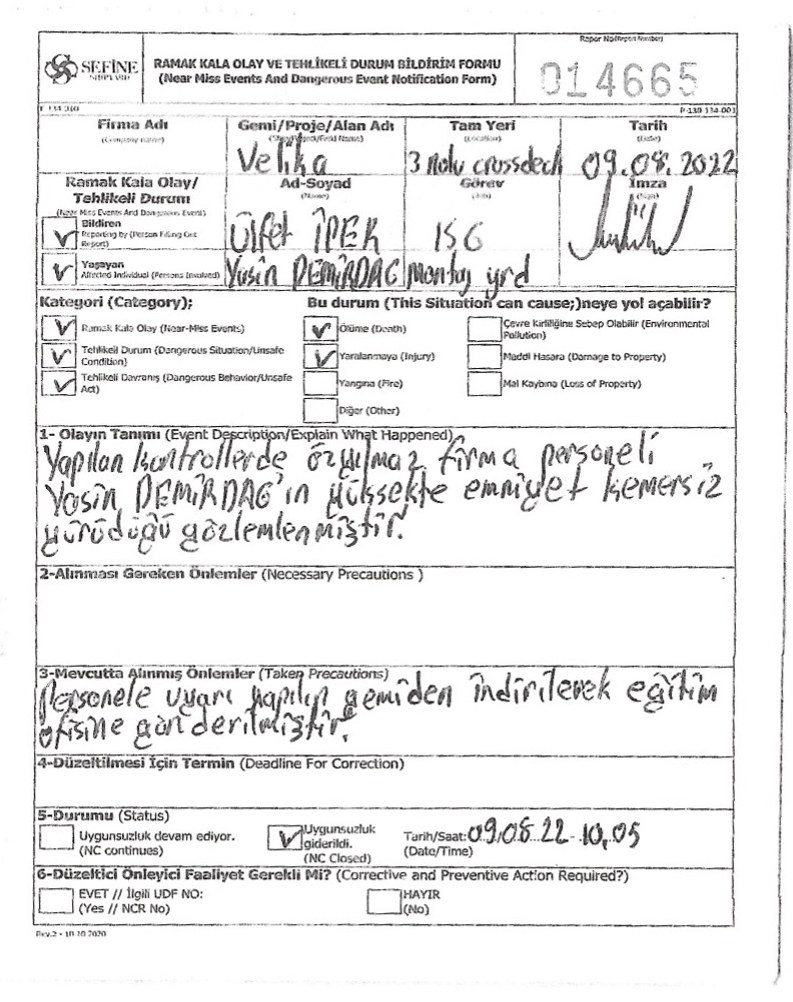 SEFİNE
SHIPYARD
RAMAK KALA OLAY VE TEHLİKELİ DURUM BİLDİRİM FORMU
(Near Miss Events And Dangerous Event Notification Form)
Rapor No(Report Number)
014665
F-134-010
P-130-134-003
Firma Adı
(Company Name)
Gemi/Proje/Alan Adı
Velika
Tam Yeri
(Location)
3 nolu crossdech
Tarih
(Date)
09.08.2022
Ramak Kala Olay/
Tehlikeli Durum
(Near Miss Events And Dangerous Event)
Ad-Soyad
(Name)
Görev
(Job)
İmza
(Sign)
Bildiren
Reporting by (Person Filing Out
Report)
Ülfet İPEK
İSG
Yaşayan
Affected Individual (Persons Involved)
Yasin DEMİRDAG
montaj yrd
Kategori (Category);
Bu durum (This Situation can cause;)neye yol açabilir?
Ramak Kala Olay (Near-Miss Events)
Ölüme (Death)
Çevre Kirliliğine Sebep Olabilir (Environmental
Pollution)
Tehlikeli Durum (Dangerous Situation/Unsafe
Condition)
Yaralanmaya (Injury)
Maddi Hasara (Damage to Property)
Tehlikeli Davranış (Dangerous Behavior/Unsafe
Act)
Yangına (Fire)
Mal Kaybına (Loss of Property)
Diğer (Other)
1- Olayın Tanımı (Event Description/Explain What Happened)
Yapılan kontrollerde özyılmaz firma personeli
Yasin DEMİRDAG'ın yüksekte emniyet kemersiz
yürüdüğü gözlemlenmiştir.
2-Alınması Gereken Önlemler (Necessary Precautions )
3-Mevcutta Alınmış Önlemler (Taken Precautions)
Personele uyarı yapılıp gemiden indirilerek eğitim
ofisine gönderilmiştir.
4-Düzeltilmesi İçin Termin (Deadline For Correction)
5-Durumu (Status)
Uygunsuzluk devam ediyor.
(NC continues)
Uygunsuzluk
giderildi.
(NC Closed)
Tarih/Saat: 09.08.22-10.05
(Date/Time)
6-Düzeltici Önleyici Faaliyet Gerekli Mi? (Corrective and Preventive Action Required?)
EVET // İlgili UDF NO:
(Yes // NCR No)
HAYIR
(No)
Rev.2 - 10.10.2020